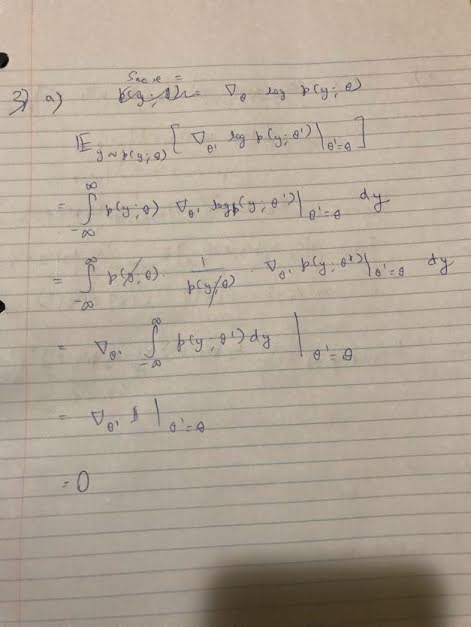 3) a) Score = ∇_θ log p(y; θ)
𝔼_{y∼p(y;θ)} [ ∇_{θ'} log p(y; θ') |_{θ'=θ} ]
= ∫_{-∞}^{∞} p(y; θ) ∇_{θ'} log p(y; θ') |_{θ'=θ} dy
= ∫_{-∞}^{∞} p(y; θ) · 1/p(y; θ) · ∇_{θ'} p(y; θ') |_{θ'=θ} dy
= ∇_{θ'} ∫_{-∞}^{∞} p(y; θ') dy |_{θ'=θ}
= ∇_{θ'} 1 |_{θ'=θ}
= 0